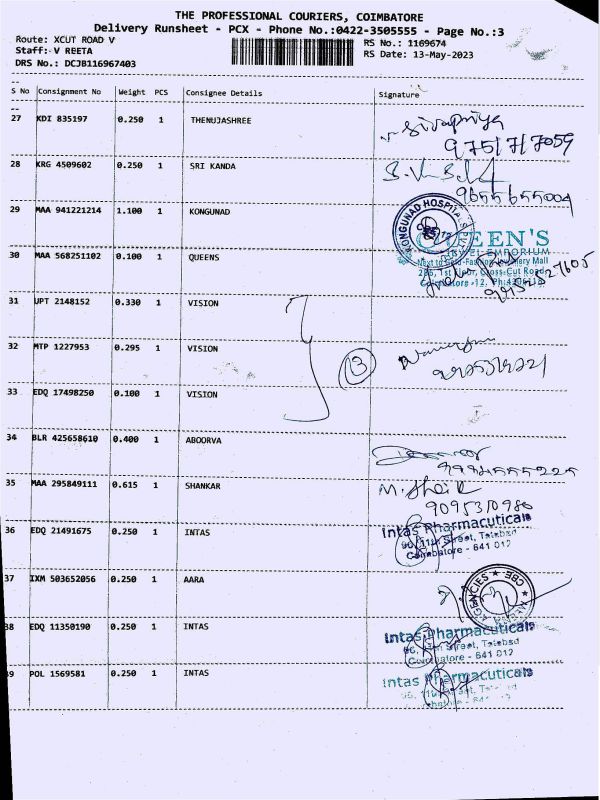 THE PROFESSIONAL COURIERS, COIMBATORE
Delivery Runsheet - PCX - Phone No.:0422-3505555 - Page No.:3
Route: XCUT ROAD V RS No.: 1169674
Staff: V REETA RS Date: 13-May-2023
DRS No.: DCJB116967403
S No Consignment No Weight PCS Consignee Details Signature
27 KDI 835197 0.250 1 THENUJASHREE
9751717059
28 KRG 4509602 0.250 1 SRI KANDA
9655655004
29 MAA 941221214 1.100 1 KONGUNAD
KONGUNAD HOSPITAL
30 MAA 568251102 0.100 1 QUEENS
QUEEN'S
JEWEL EMPORIUM
Mall
236, 1st Floor, Cross Cut Road
Coimbatore -12.
31 UPT 2148152 0.330 1 VISION
32 MTP 1227953 0.295 1 VISION
3
33 EDQ 17498250 0.100 1 VISION
34 BLR 425658610 0.400 1 ABOORVA
35 MAA 295849111 0.615 1 SHANKAR
M. Shaik
9095310980
36 EDQ 21491675 0.250 1 INTAS
Intas Pharmacuticals
96, 11th Street, Tatabad
Coimbatore - 641 012
37 IXM 503652056 0.250 1 AARA
AGENCIES ★ CBE ★
38 EDQ 11350190 0.250 1 INTAS
Intas Pharmacuticals
96, 11th Street, Tatabad
Coimbatore - 641 012
39 POL 1569581 0.250 1 INTAS
Intas Pharmacuticals